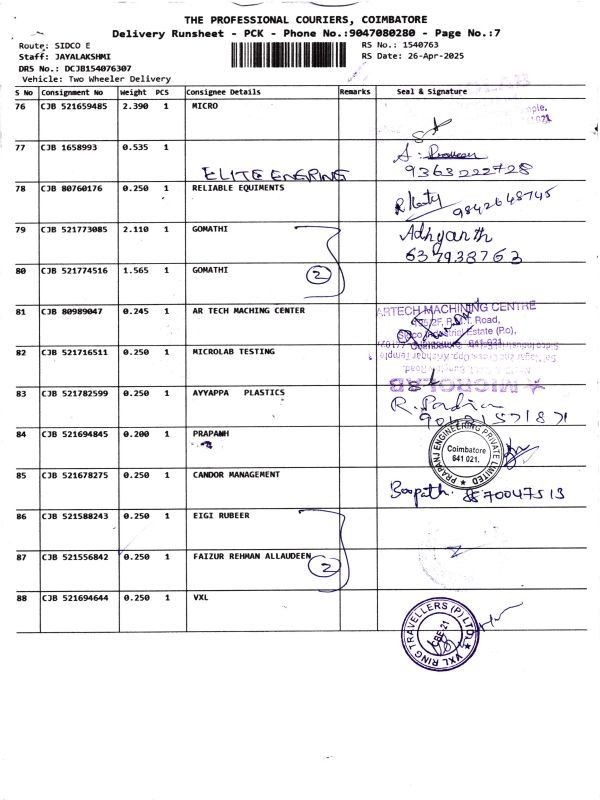 THE PROFESSIONAL COURIERS, COIMBATORE
Delivery Runsheet - PCK - Phone No.:9047080280 - Page No.:7
Route: SIDCO E
RS No.: 1540763
Staff: JAYALAKSHMI
RS Date: 26-Apr-2025
DRS No.: DCJB154076307
Vehicle: Two Wheeler Delivery
S No Consignment No Weight PCS Consignee Details Remarks Seal & Signature
76 CJB 521659485 2.390 1 MICRO
77 CJB 1658993 0.535 1
9363222728
ELITE ENGRING
78 CJB 80760176 0.250 1 RELIABLE EQUIMENTS
9842648745
79 CJB 521773085 2.110 1 GOMATHI
Adhyanth
637938763
2
80 CJB 521774516 1.565 1 GOMATHI
81 CJB 80989047 0.245 1 AR TECH MACHING CENTER
ARTECH MACHINING CENTRE
Road,
Estate (P.o),
82 CJB 521716511 0.250 1 MICROLAB TESTING
MICROLAB
83 CJB 521782599 0.250 1 AYYAPPA PLASTICS
84 CJB 521694845 0.200 1 PRAPANH
PRAPANJ ENGINEERING PRIVATE LIMITED
Coimbatore
641 021.
85 CJB 521678275 0.250 1 CANDOR MANAGEMENT
Boopath. 8870047513
86 CJB 521588243 0.250 1 EIGI RUBEER
87 CJB 521556842 0.250 1 FAIZUR REHMAN ALLAUDEEN
2
88 CJB 521694644 0.250 1 VXL
VXL RING TRAVELLERS (P) LTD.
CBE-21